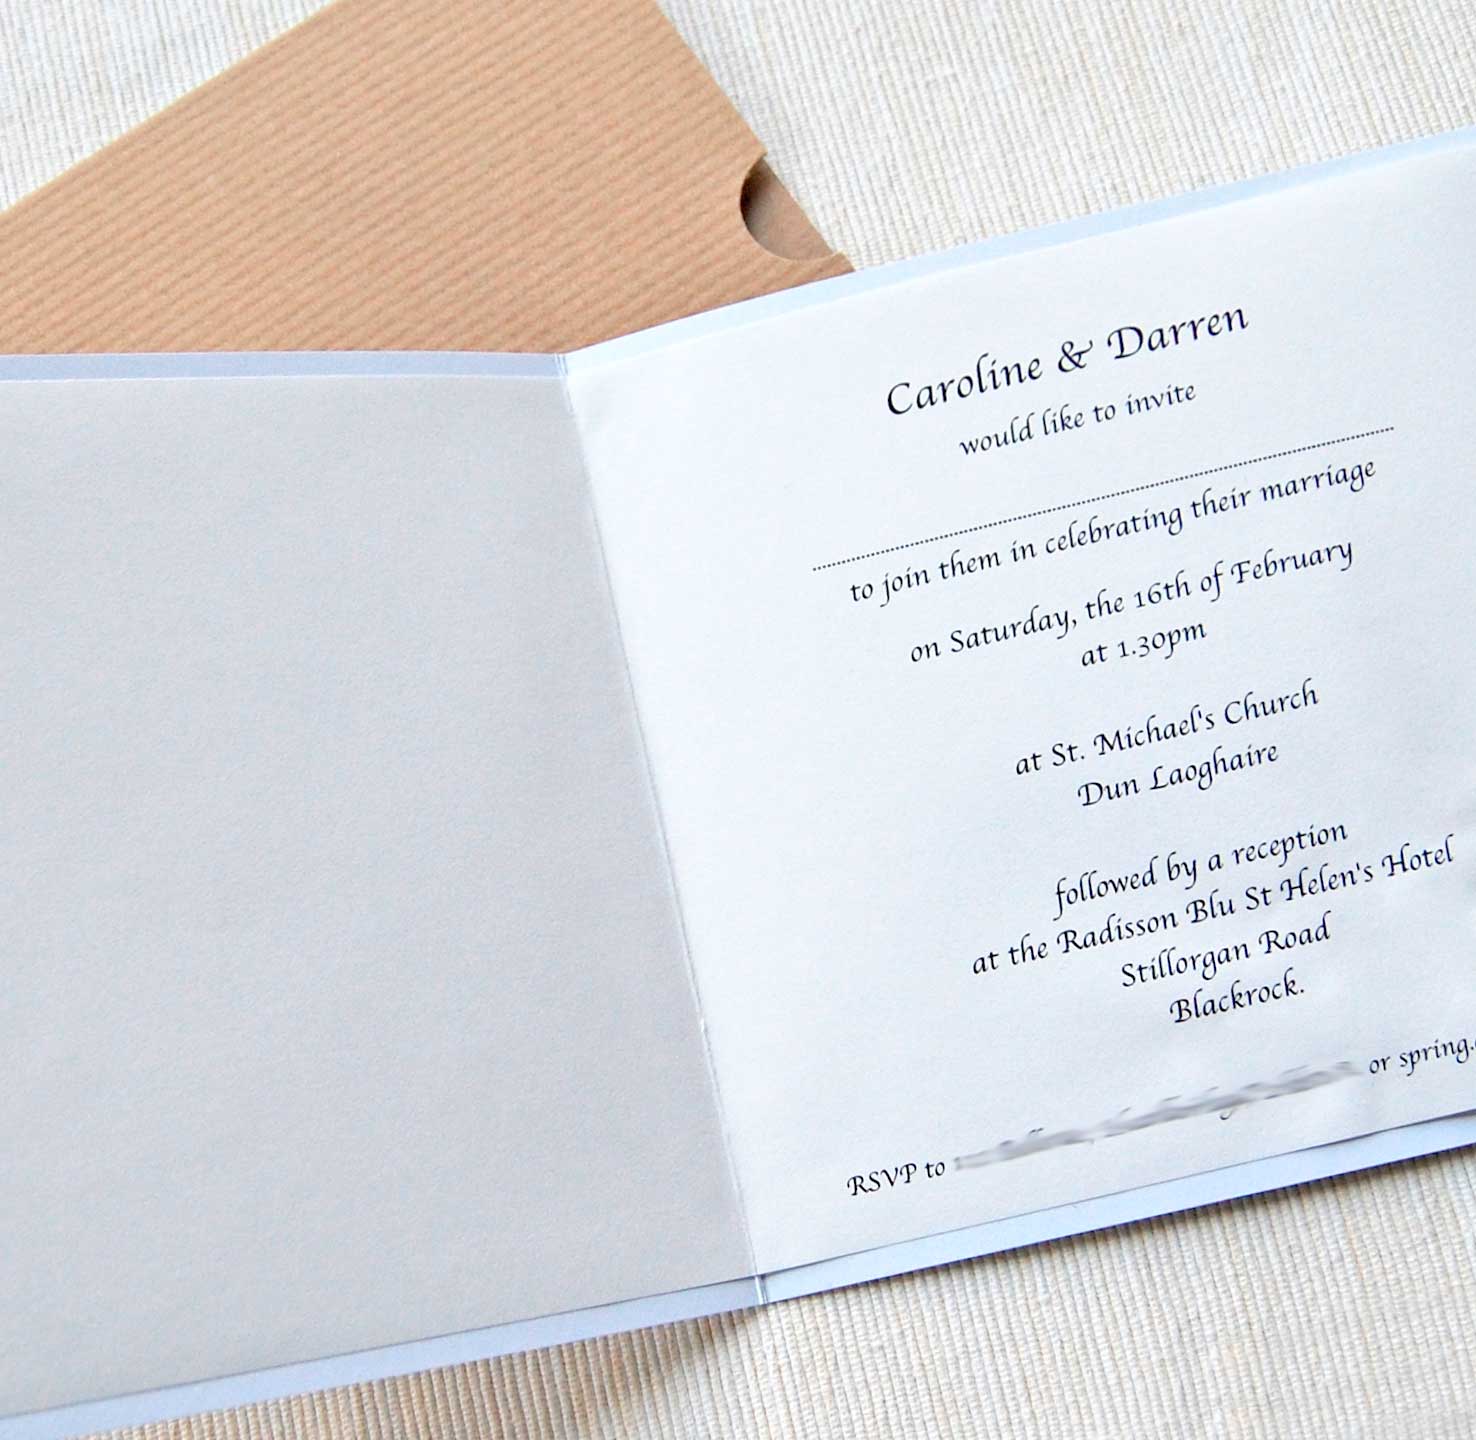 Caroline & Darren
would like to invite
to join them in celebrating their marriage
on Saturday, the 16th of February
at 1.30pm
at St. Michael's Church
Dun Laoghaire
followed by a reception
at the Radisson Blu St Helen's Hotel
Stillorgan Road
Blackrock.
RSVP to or spring.